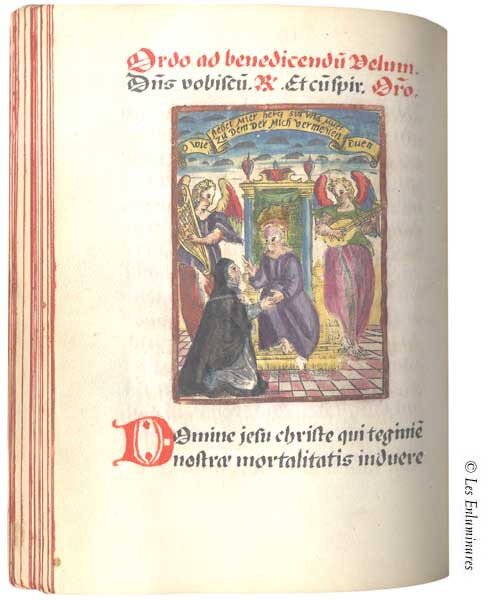 Ordo ad benedicendū Velum.
Dn̄s vobiscū. ℟. Et cū spir. Or̄o.
O wie
Mier herq sin Muet
zu Dem Der Mich vermehlen
Duett
Domine jesu christe qui tegimē
nostræ mortalitatis induere
© Les Enluminures